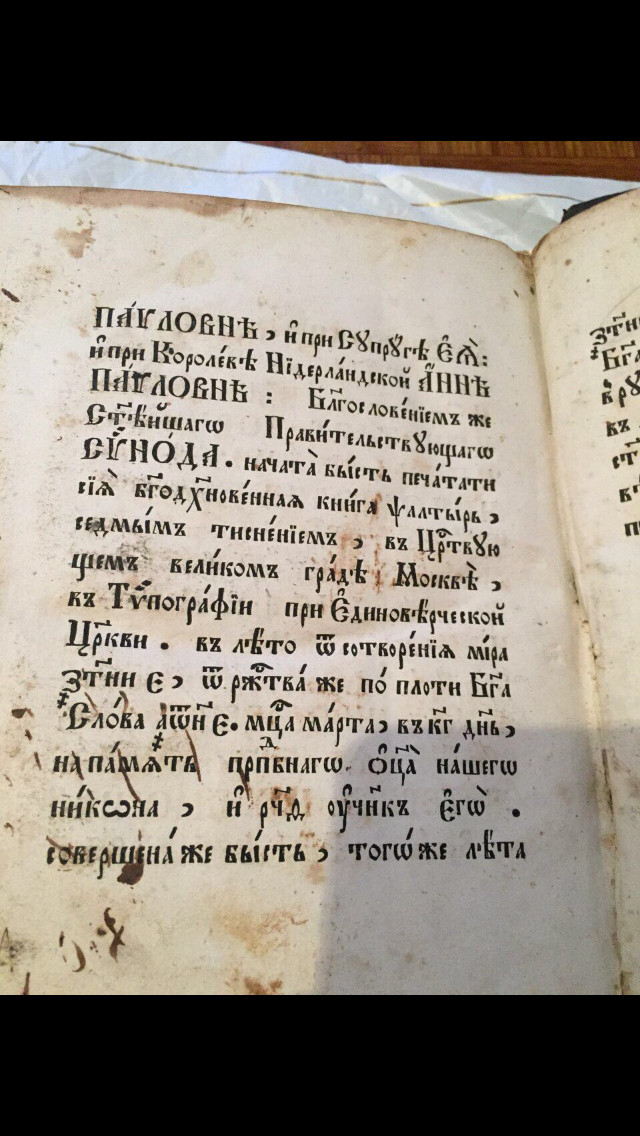 ПА́ѴЛОВНѢ, и҆ при Сꙋпрꙋ́гѣ Є҆ѧ̀:
и҆ при Короле́вѣ Нїдерла́ндской А҆́ННѢ
ПА́ѴЛОВНѢ : Бл҃гослове́нїемъ же
Ст҃ѣ́йшагѡ Прави́тельствꙋющагѡ
СѴНО́ДА. начата̀ бы́сть печа́тати
сїѧ̀ бг҃одх҃нове́нная кни́га ѱалты́рь,
седмы́мъ тисне́нїемъ, въ Црⷭ҇твꙋю
щемъ вели́комъ гра́дѣ Москвѣ̀,
въ Тѷпогра́фїи при Є҆диновѣ́рческой
Цр҃кви. въ лѣ́то ѿ сотворе́нїѧ мі́ра
҂зт҃ии є, ѿ ржⷭ҇тва́ же по́ пло́ти Бг҃а
Сло́ва ҂аѿ҃н є. мцⷭ҇а ма́рта, въ кг҃ дн҃ь,
на па́мѧть прпⷣбнагѡ ѻ҆ц҃а̀ на́шегѡ
ни́кѡна, и҆ рч҃д ᲂу҆чн҃къ є҆гѡ̀.
соверше́на же бы́сть, тогѡ́ же лѣ́та